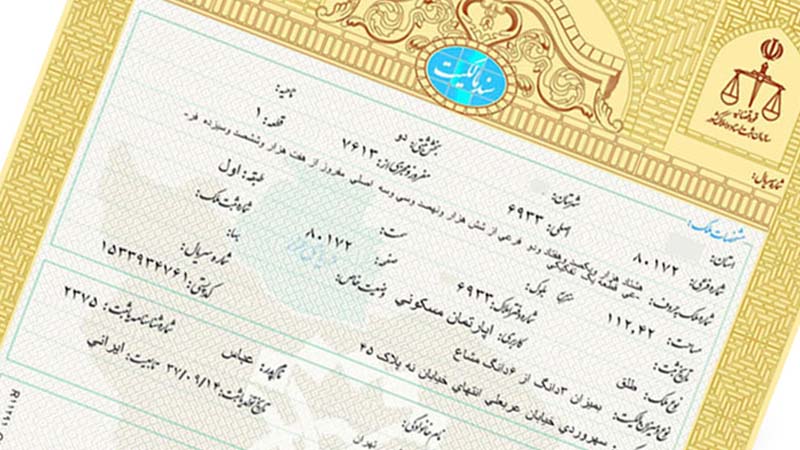 سند مالکیت
قوه قضائیه
سازمان ثبت اسناد و املاک کشور
شماره سریال:
مشخصات ملک:
استان: شهرستان: بخش ثبتی: دو ناحیه:
شماره فرعی: ۸۰۱۷۲ اصلی: ۶۹۳۳ مفروز و مجزی از: ۷۶۱۳ قطعه: ۱
شماره ملک بحروف: هشتاد هزار و یکصد و هفتاد و دو فرعی از شش هزار و نهصد و سی و سه اصلی مفروز از هفت هزار و ششصد و سیزده فر-
عی قطعه یک تفکیکی
مساحت: ۱۱۲,۴۲ منتها بلوک: سمت: طبقه: اول
تاریخ ثبت: شماره دفتر املاک: ۶۹۳۳ صفحه: ۸۰۱۷۲ شماره ثبت ملک:
نوع ملک: طلق کاربری: آپارتمان مسکونی وضعیت خاص: بها:
نوع و میزان مالکیت: بمیزان ۳دانگ از ۶دانگ مشاع شماره سریال:
سهروردی خیابان عربعلی انتهای خیابان نه پلاک ۴۵ کدپستی: ۱۵۳۳۹۳۴۷۶۱
نام پدر: عباس شماره شناسنامه یا ثبت: ۲۳۷۵
نام خانوادگی: تاریخ تولد یا ثبت: ۳۷/۰۹/۱۴ تابعیت: ایرانی
تهران